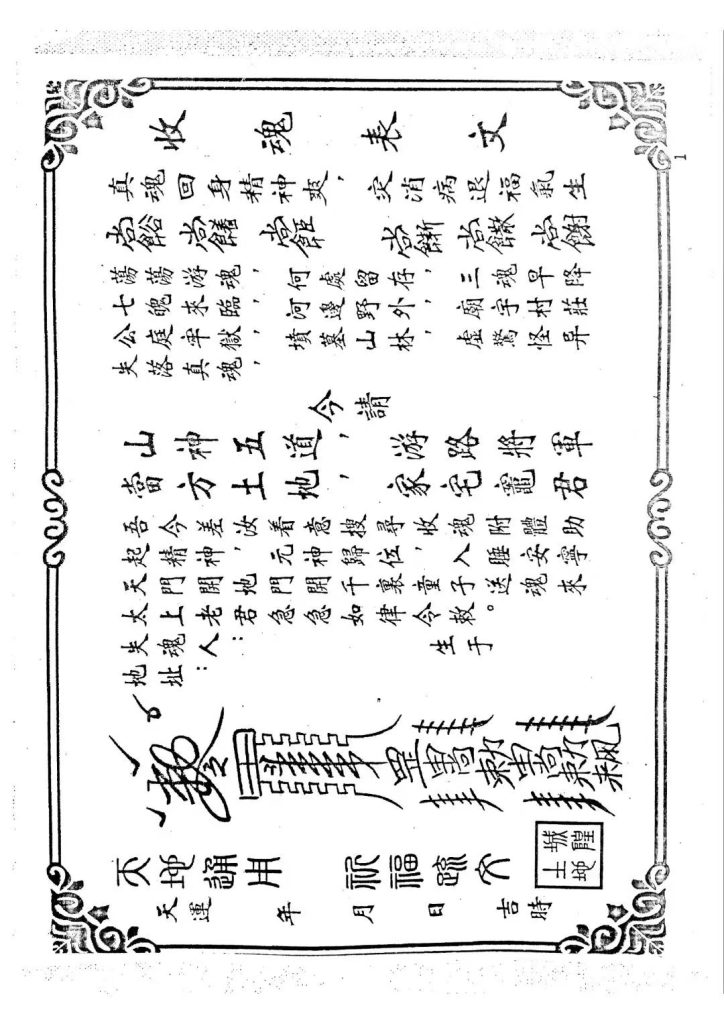 收魂表文
真魂回身精神爽，災消病退福氣生
蕩蕩游魂，何處留存，三魂早降
七魄來臨，河邊野外，廟宇村莊
公庭牢獄，墳墓山林，虛驚怪异
失落真魂，
今請
山神五道，游路將軍
當方土地，家宅竈君
吾今差汝着意搜尋收魂附體助
起精神，元神歸位，入睡安寧
天門開地門開千裏童子送魂來
太上老君急急如律令敕。
失魂人： 生于
地址：
天地通用 祈福疏文
城隍土地
天運 年 月 日 吉時
1